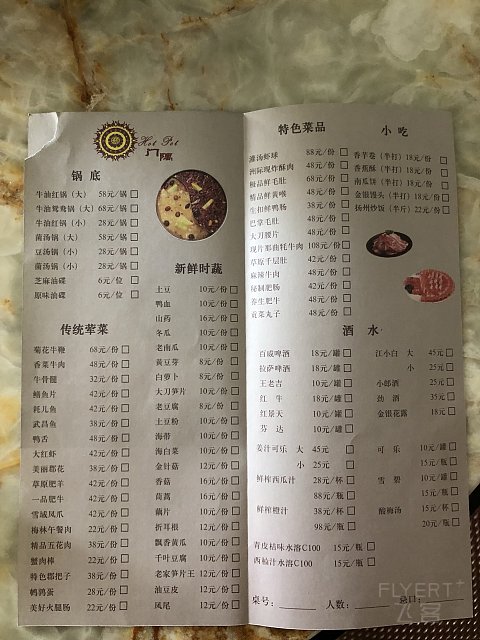 Hot Pot
锅底
牛油红锅（大） 58元/锅
牛油鸳鸯锅（大） 68元/锅
牛油红锅（小） 28元/锅
菌汤锅（大） 58元/锅
豆汤锅（小） 28元/锅
菌汤锅（小） 28元/锅
芝麻油碟 6元/位
原味油碟 6元/位
传统荤菜
菊花牛鞭 68元/份
香菜牛肉 48元/份
牛骨髓 32元/份
鳝鱼片 42元/份
耗儿鱼 42元/份
武昌鱼 38元/份
鸭舌 48元/份
大红虾 42元/份
美丽郡花 38元/份
草原肥羊 42元/份
一品肥牛 42元/份
雪域凤爪 42元/份
梅林午餐肉 22元/份
精品五花肉 38元/份
蟹肉棒 22元/份
特色郡把子 38元/份
鹌鹑蛋 28元/份
美好火腿肠 22元/份
新鲜时蔬
土豆 10元/份
鸭血 10元/份
山药 16元/份
冬瓜 10元/份
老南瓜 10元/份
黄豆芽 8元/份
白萝卜 8元/份
大刀笋片 10元/份
老豆腐 8元/份
土豆粉 10元/份
海带 10元/份
海白菜 10元/份
金针菇 12元/份
香菇 16元/份
茼蒿 16元/份
藕片 10元/份
折耳根 12元/份
飘香黄瓜 10元/份
千叶豆腐 10元/份
老家笋片王 12元/份
油豆皮 12元/份
凤尾 12元/份
特色菜品
灌汤虾球 88元/份
洲际现炸酥肉 48元/份
极品鲜毛肚 68元/份
精品鲜黄喉 48元/份
生扣鲜鸭肠 38元/份
巴掌毛肚 48元/份
大刀腰片 48元/份
现片那曲牦牛肉 108元/份
草原千层肚 42元/份
麻辣牛肉 48元/份
秘制肥肠 42元/份
养生肥牛 48元/份
贡菜丸子 48元/份
小吃
香芋卷（半打） 18元/份
香蕉酥（半打） 18元/份
南瓜饼（半打） 18元/份
金银馒头（半打） 18元/份
扬州炒饭（半斤） 22元/份
酒水
百威啤酒 18元/罐
拉萨啤酒 18元/罐
王老吉 10元/罐
红牛 18元/罐
红景天 10元/罐
芬达 10元/罐
江小白 大 45元
小 25元
小郎酒 25元
劲酒 35元
金银花露 18元
姜汁可乐 大 45元
小 25元
鲜榨西瓜汁 28元/杯
88元/瓶
鲜榨橙汁 38元/杯
98元/瓶
可乐 10元/罐
15元/瓶
雪碧 10元/罐
15元/瓶
酸梅汤 15元/瓶
20元/瓶
青皮桔味水溶C100 15元/瓶
西柚汁水溶C100 15元/瓶
桌号： 人数：
FLYERT